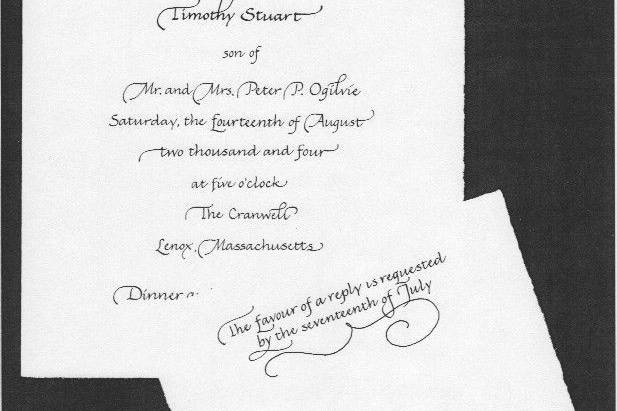 Timothy Stuart
son of
Mr. and Mrs. Peter P. Ogilvie
Saturday, the fourteenth of August
two thousand and four
at five o'clock
The Cranwell
Lenox, Massachusetts
Dinner
The favour of a reply is requested
by the seventeenth of July